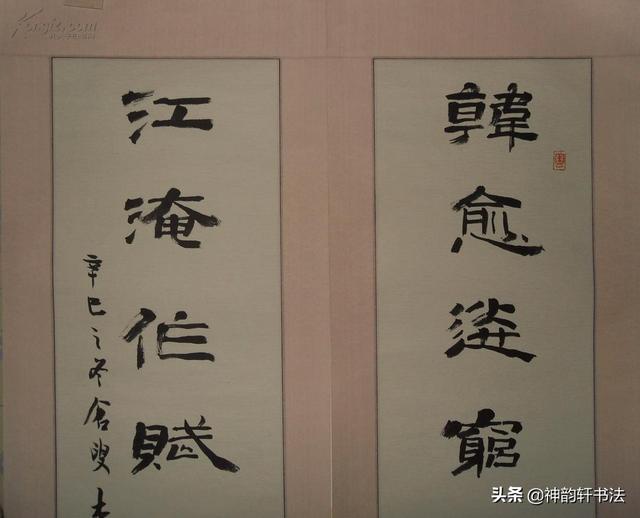 韓愈送窮
江淹作賦
辛巳之冬叟
头条 @神韵轩书法